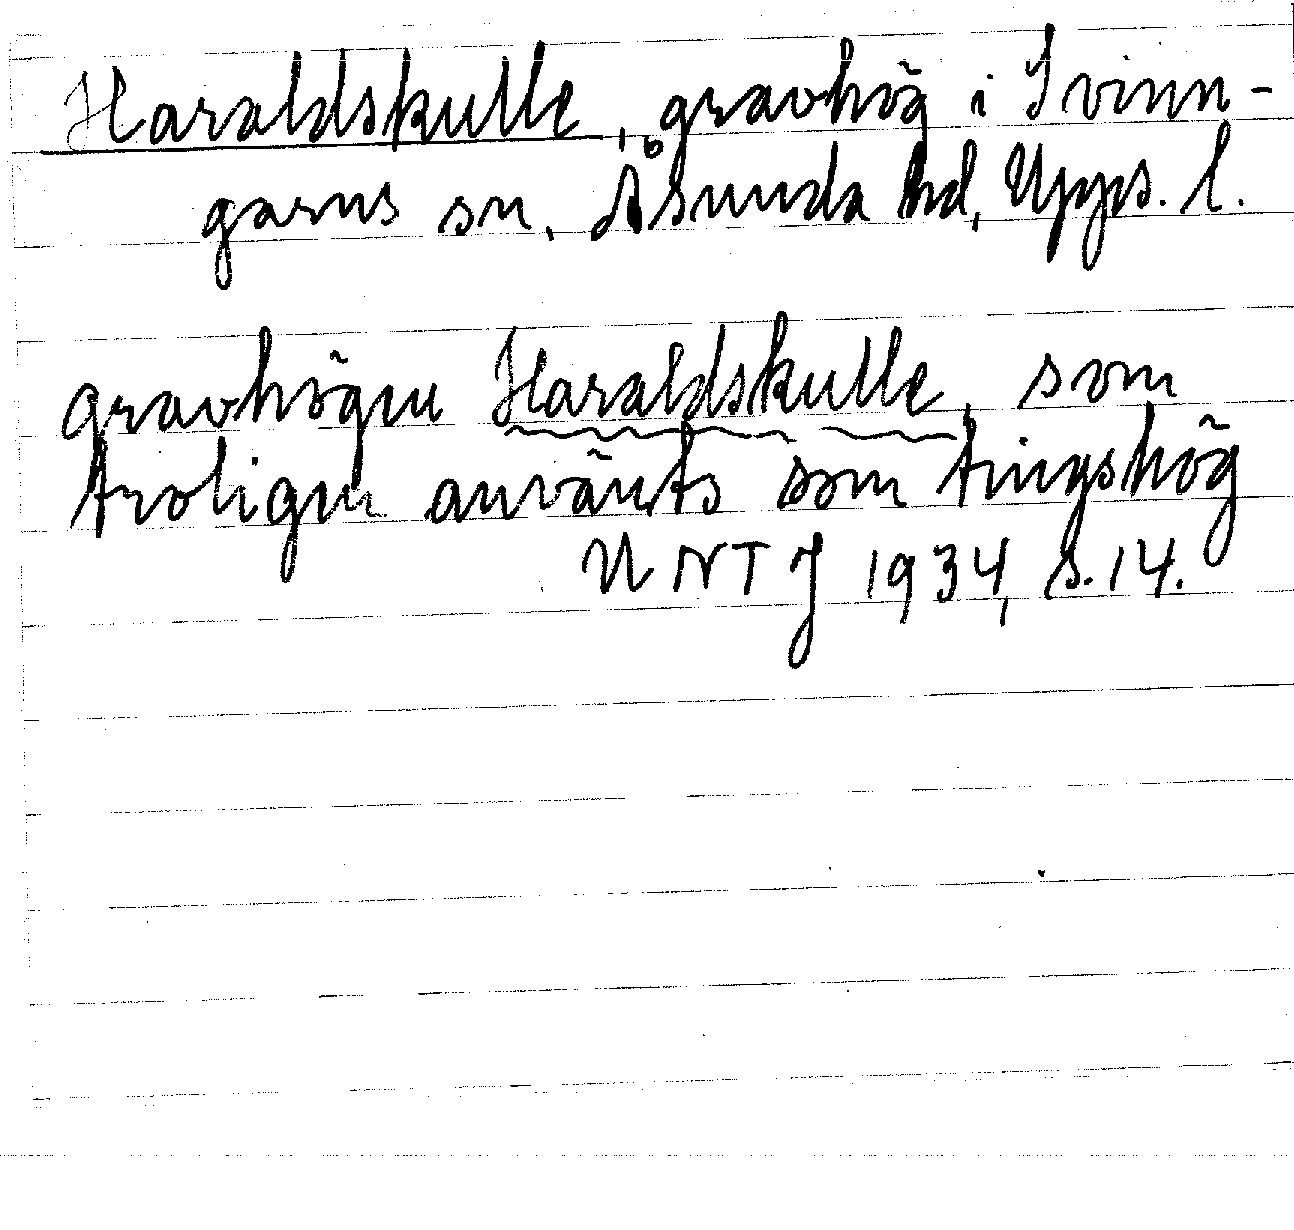 Haraldskulle, gravhög i Svinn-
garns sn, Åsunda hd, Upps. l.
gravhögen Haraldskulle, som
troligen använts som tingshög
UNTJ 1934, s. 14.